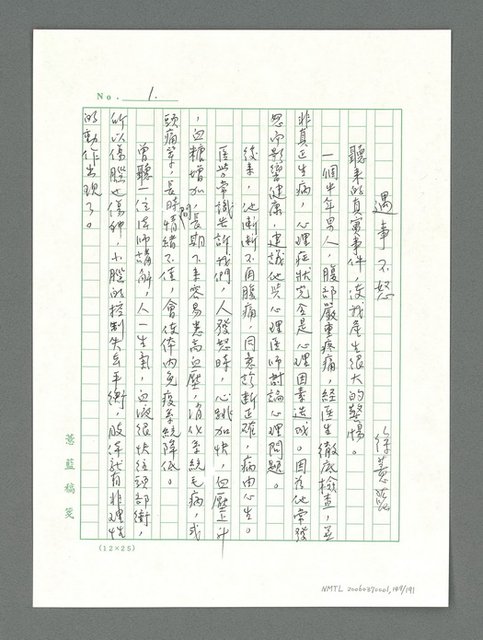 No. 1.
遇事不怒
徐薏藍
聽來的真實事件，使我產生很大的警惕。
一個中年男人，腹部嚴重疼痛，經醫生徹底檢查，並
非真正生病，心理症狀完全是心理因素造成。因為他常發
怒而影響健康，建議他與心理醫師討論心理問題。
後來，他漸漸不再腹痛，因意診斷正確，病由心生。
醫學常識告訴我們，人發怒時，心跳加快，血壓上升
，血糖增加，長期下來容易患高血壓，消化系統毛病，或
頭痛等，長時間情緒不佳，會使體內免疫系統降低。
曾聽一位法師講解，人一生氣，血液很快往頭部衝，
所以傷腦也傷神，小腦的控制失去平衡，肢體就有非理性
的動作出現了。
薏藍稿箋
(12×25)
NMTL 20060370001, 149/191